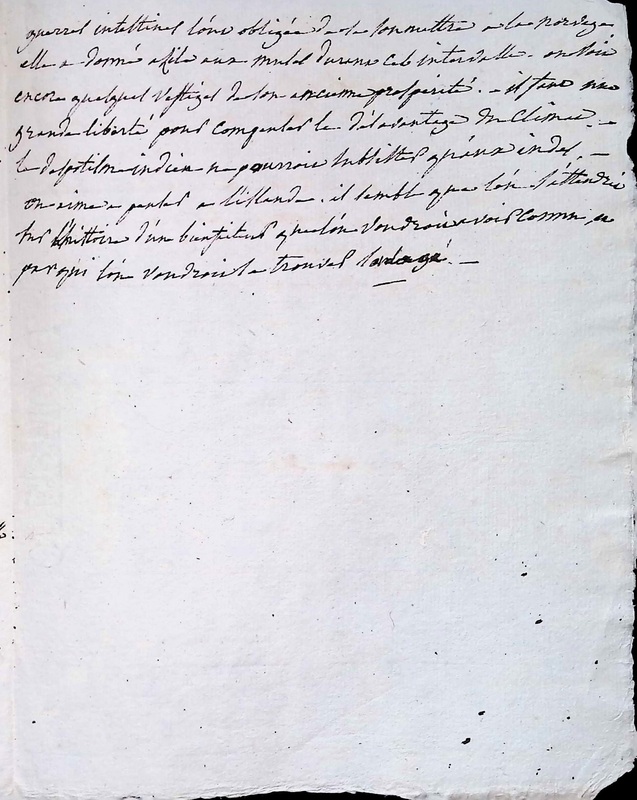 guerres intestines l'ont obligée de se soumettre a la norvege
elle a donné asile aux muses durant cet intervalle. on voit
encore quelques vestiges de son ancienne prosperité. – il faut une
grande liberté pour compenser le désavantage du climat. –
le despotisme indien ne pourroit subsister qu'aux indes. –
on aime a penser a l'islande. il semble que l'on s'attendrit
sur l'histoire d'un bienfaiteur que l'on voudroit avoir connu, et
par qui l'on voudroit se trouver –